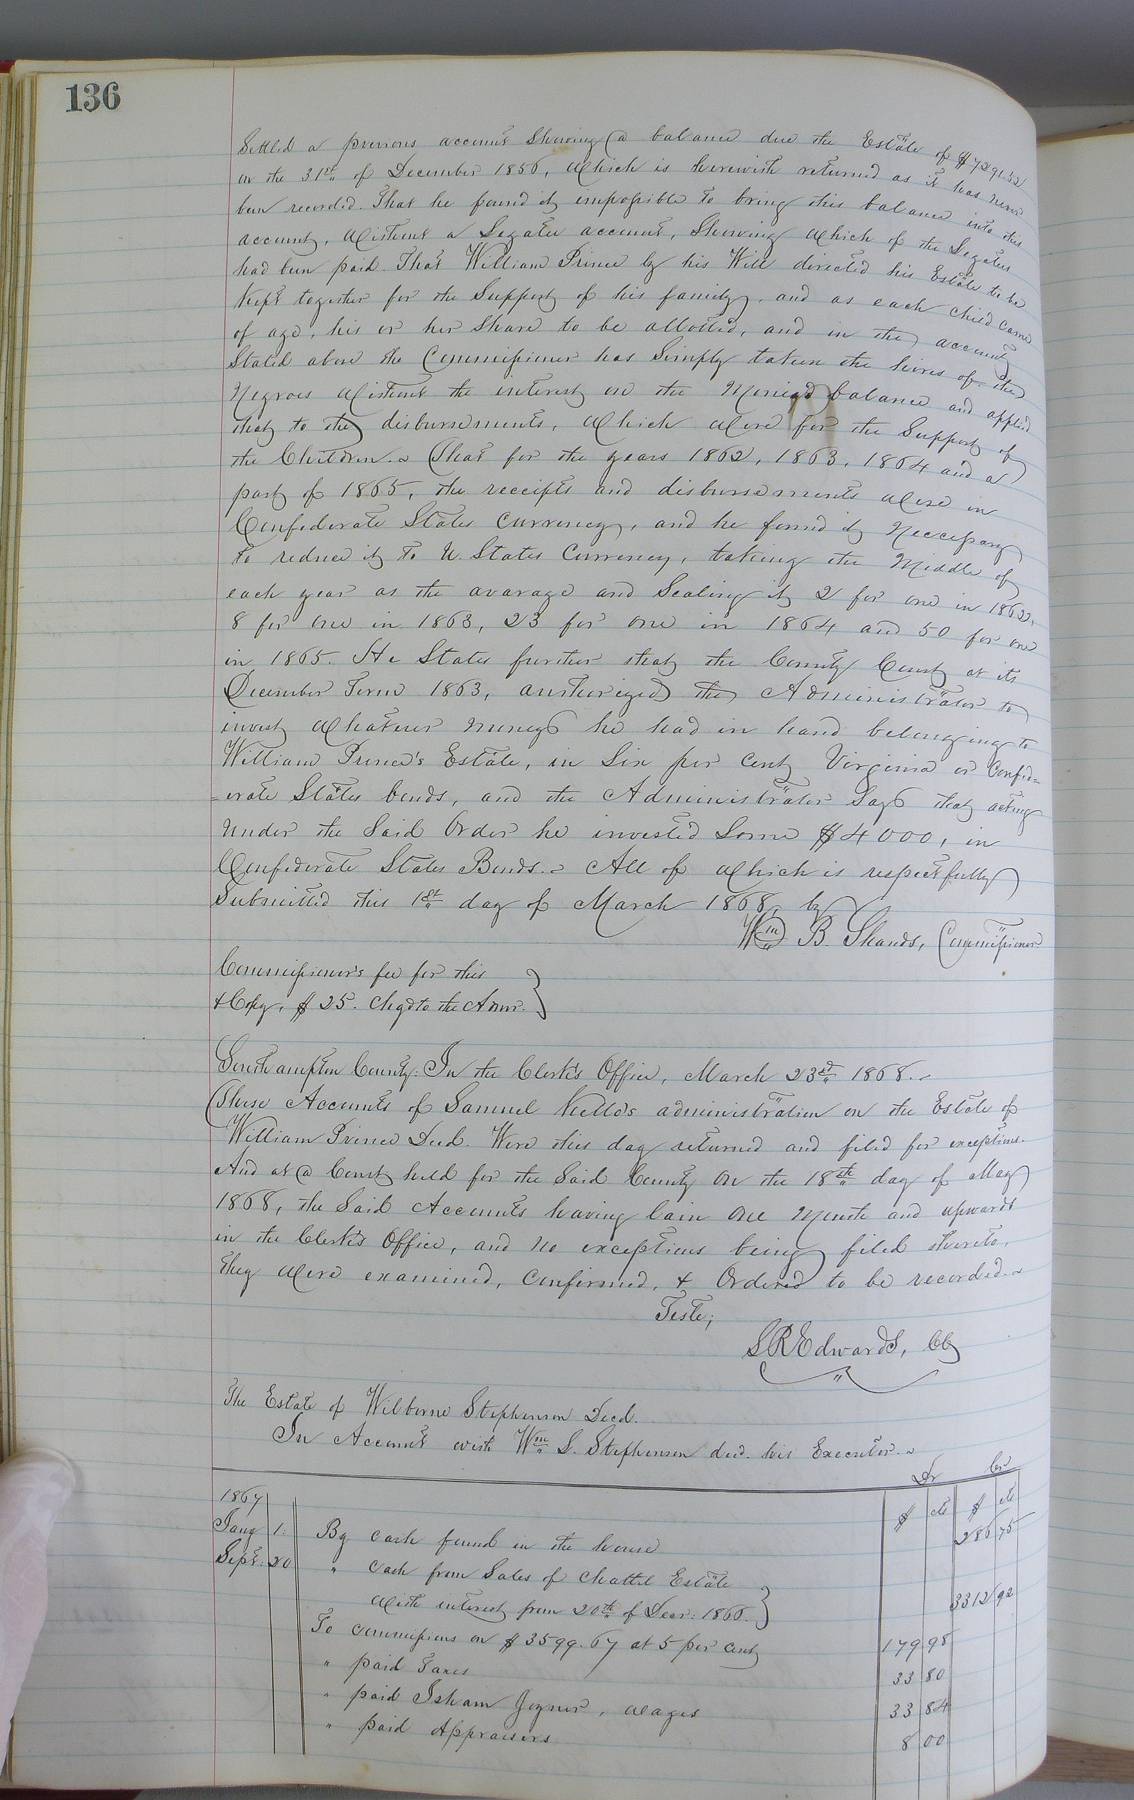 136
Settled a previous account Showing a balance due the Estate of $7291.52
on the 31st of December 1856, which is herewith returned as it has never
been recorded. That he found it impossible to bring this balance into this
account, without a Legatee account, Showing which of the Legatees
had been paid. That William Prince by his Will directed his Estate to be
Kept together for the Support of his family, and as each child came
of age, his or her share to be allotted, and in the account
Stated above the Commissioner has Simply taken the hires of the
Negroes without the interest on the Monied balance and applied
that to the disbursements, which were for the Support of
the Children. That for the years 1862, 1863, 1864 and a
part of 1865, the receipts and disbursements were in
Confederate States Currency, and he found it Neccessary
to reduce it to U. States Currency, taking the Middle of
each year as the avarage and Scaling it 2 for one in 1862,
8 for one in 1863, 23 for one in 1864 and 50 for one
in 1865. He States further that the County Court at its
December Term 1863, authorized the Administrator to
invest whatever money he had in hand belonging to
William Prince's Estate, in Six per cent Virginia or Confed=
=erate States bonds, and the Administrator Says that acting
under the Said Order he invested Some $4000, in
Confederate States Bonds. All of which is respectfully
Submitted this 1st day of March 1868, by
Wm B. Shands, Commissioner
Commissioner's fee for this
& Copy, $25. Chgd to the Admr.
Southampton County: In the Clerk's Office, March 23rd 1868.
These Accounts of Samuel Kello's administration on the Estate of
William Prince Decd. Were this day returned and filed for exceptions.
And at a Court held for the Said County on the 18th day of May
1868, the Said Accounts having lain one Month and upwards
in the Clerk's Office, and no exceptions being filed thereto,
they were examined, confirmed, & Ordered to be recorded.
Teste;
S R Edwards, CC
The Estate of Wilborne Stephenson Decd.
In Account with Wm S. Stephenson decd. his Executor.
Dr Cr
1867 $ cts $ cts
Jany 1. By cash found in the house 286 75
Sept. 20 " Cash from Sales of Chattel Estate
with interest from 20th of Decr: 1866. 3312 92
To commissions on $3599.67 at 5 per cent 179 98
" paid Taxes 33 80
" paid Isham Joyner, wages 33 84
" paid Appraisers 8 00